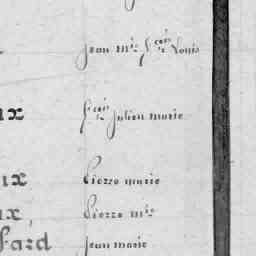 jean m.ie f.cois Louis
ux f.cois julien marie
ux Pierre marie
ux, Pierre m.ie
fard jean marie